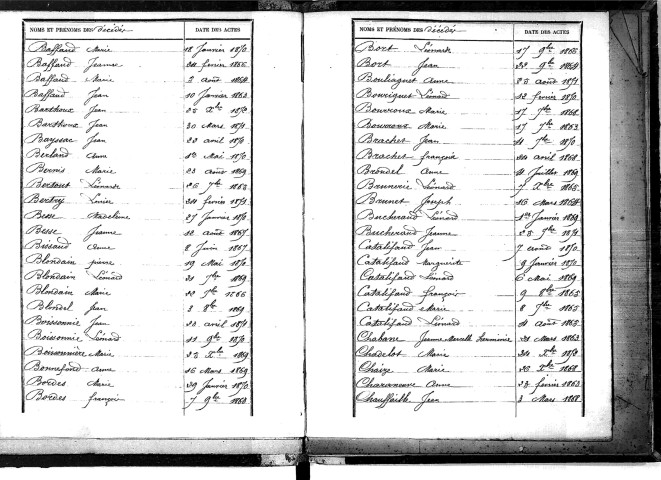 NOMS ET PRÉNOMS DES décédés DATE DES ACTES
Baffaud Marie 18 Janvier 1870
Baffaud Jeanne 24 février 1866
Baffaud Marie 2 août 1864
Baffaud Jean 10 Janvier 1863
Barthoux Jean 25 Xbre 1870
Barthoux Jean 30 Mars 1871
Bayssac Jean 22 avril 1870
Berland Anne 1er Mai 1870
Bernis Marie 23 août 1869
Bertout Léonarde 26 7bre 1863
Bertry Louise 24 février 1871
Besse Madeleine 27 Janvier 1870
Besse Jeanne 12 août 1867
Bissaud Anne 8 Juin 1867
Blondain pierre 19 Mai 1870
Blondain Léonard 21 7bre 1869
Blondain Marie 22 9bre 1866
Blondel Jean 2 8bre 1869
Boissonnie Jean 22 avril 1871
Boissonnie Léonard 11 9bre 1870
Boissonnière Marie 22 Xbre 1869
Bonnefond anne 16 Mars 1869
Bordes Marie 29 Janvier 1870
Bordes françois 7 9bre 1868
NOMS ET PRÉNOMS DES décédés DATE DES ACTES
Bort Léonarde 17 9bre 1866
Bort Jean 22 9bre 1864
Bouliaguet Anne 25 août 1871
Bourriquet Léonard 12 février 1870
Bouvroux Marie 17 7bre 1868
Bouvroux Marie 17 7bre 1863
Brachet Jean 4 7bre 1870
Brachet françois 24 avril 1868
Brondel Anne 4 Juillet 1869
Brunerie Léonard 7 Xbre 1865
Brunet Joseph 16 Mars 1864
Bucheraud Léonard 1er Janvier 1869
Bucheraud Jeanne 25 9bre 1870
Catalifaud Jean 7 août 1870
Catalifaud Marguerite 9 Janvier 1870
Catalifaud Léonard 6 Mai 1869
Catalifaud françois 9 8bre 1865
Catalifaud Marie 8 7bre 1865
Catalifaud Léonard 4 août 1865
Chabane Jeanne Marcelle 21 Mars 1863
Chadelot Marie 24 Xbre 1870
Chaize Marie 26 Xbre 1868
Anne 23 février 1863
Jean 3 Mars 1868